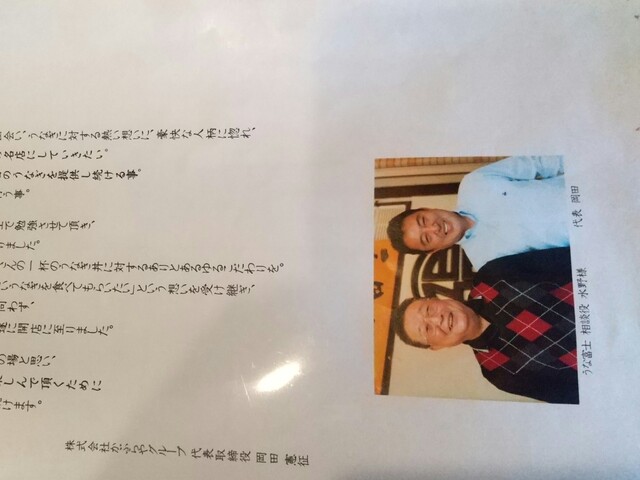 会い、うなぎに対する熱い想いに、豪快な人柄に惚れ、
名店にしていきたい。
のうなぎを提供し続ける事。
う事。
で勉強させて頂き、
りました。
さんの一杯のうなぎ丼に対するありとあらゆるこだわりを。
いうなぎを食べてもらいたい」という想いを受け継ぎ、
問わず、
に開店に至りました。
の場と思い、
しんで頂くために
けます。
株式会社かぶらやグループ 代表取締役 岡田 憲征
うな富士 相談役 水野様 代表 岡田